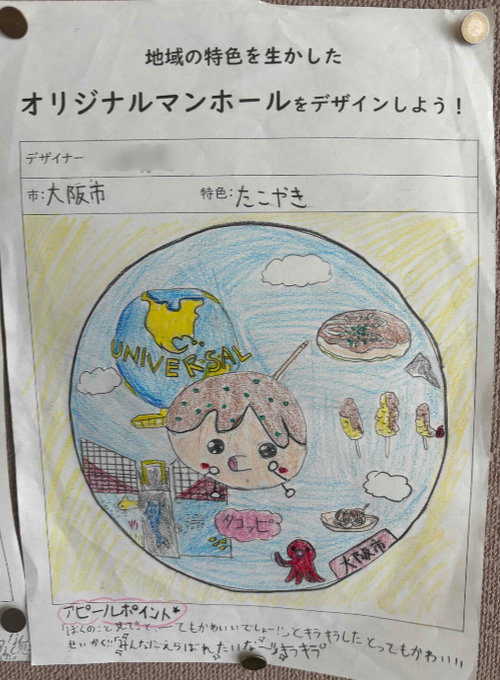 地域の特色を生かした
オリジナルマンホールをデザインしよう！
デザイナー
市：大阪市 特色：たこやき
UNIVERSAL
タコッピ
大阪市
アピールポイント*
「ぼくのこと見て！と、てもかわいいでしょー！」っとキラキラしたとってもかわいい
せいかく!!「みんなにえらばれたいな〜」キラキラ